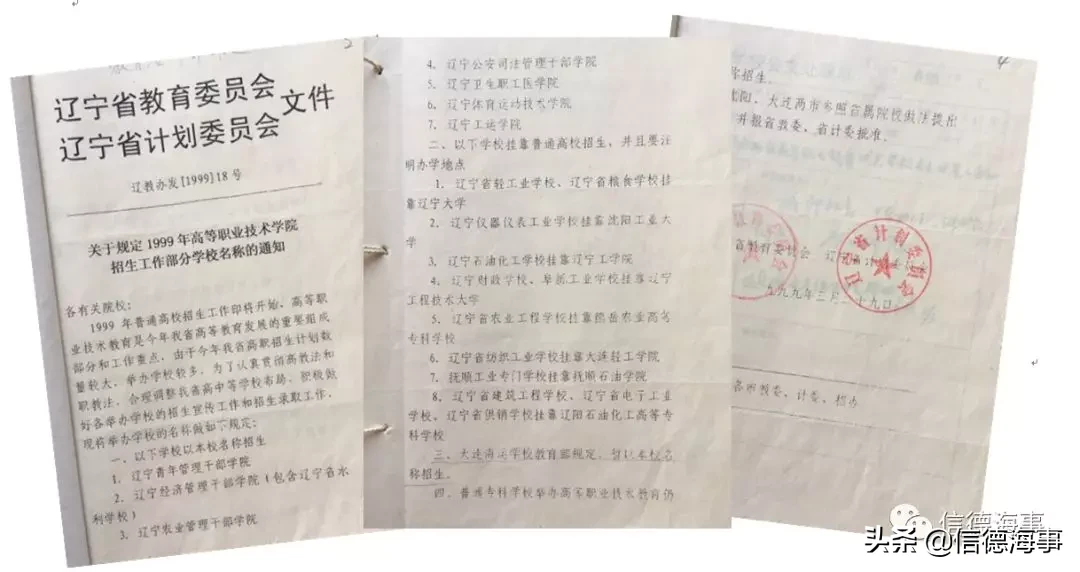 2
辽宁省教育委员会
辽宁省计划委员会
文件
辽教办发[1999]18号
关于规定1999年高等职业技术学院
招生工作部分学校名称的通知
各有关院校:
1999年普通高校招生工作即将开始,高等职
业技术教育是今年我省高等教育发展的重要组成
部分和工作重点,由于今年我省高职招生计划数
量较大,举办学校较多,为了认真贯彻高教法和
职教法,合理调整我省高中等学校布局,积极做
好各举办学校的招生宣传工作和招生录取工作,
现将举办学校的名称做如下规定:
一、以下学校以本校名称招生
1.辽宁青年管理干部学院
2.辽宁经济管理干部学院(包含辽宁省水
利学校)
3.辽宁农业管理干部学院
4.辽宁公安司法管理干部学院
5.辽宁卫生职工医学院
6.辽宁体育运动技术学院
7.辽宁工运学院
二、以下学校挂靠普通高校招生,并且要注
明办学地点
1.辽宁省轻工业学校、辽宁省粮食学校挂
靠辽宁大学
2.辽宁仪器仪表工业学校挂靠沈阳工业大
学
3.辽宁石油化工学校挂靠辽宁工学院
4.辽宁财政学校、阜新工业学校挂靠辽宁
工程技术大学
5.辽宁省农业工程学校挂靠熊岳农业高等
专科学校
6.辽宁省纺织工业学校挂靠大连轻工学院
7.抚顺工业专门学校挂靠抚顺石油学院
8.辽宁省建筑工程学校、辽宁省电子工业
学校、辽宁省供销学校挂靠辽阳石油化工高等专
科学校
三、大连海运学校教育部规定,暂以本校名
称招生。
四、普通专科学校举办高等职业技术教育仍
4
称招生。
沈阳、大连两市参照省属院校做法提出
并报省教委、省计委批准。
省教育委员会 辽宁省计划委员会
一九九九年三月二十九日
各市教委、计委、招办
信德海事
头条 @信德海事